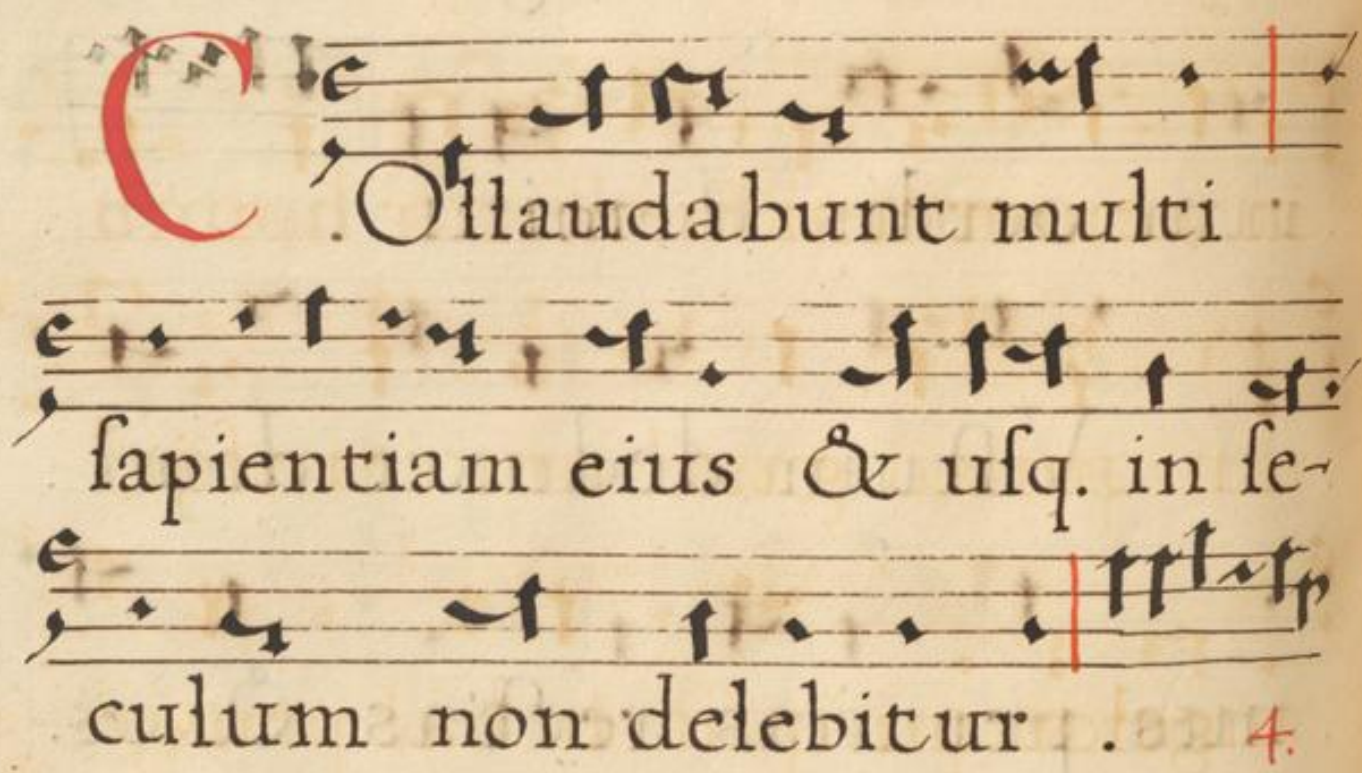 COllaudabunt multi
ſapientiam eius & uſq. in ſe-
culum non delebitur . 4.